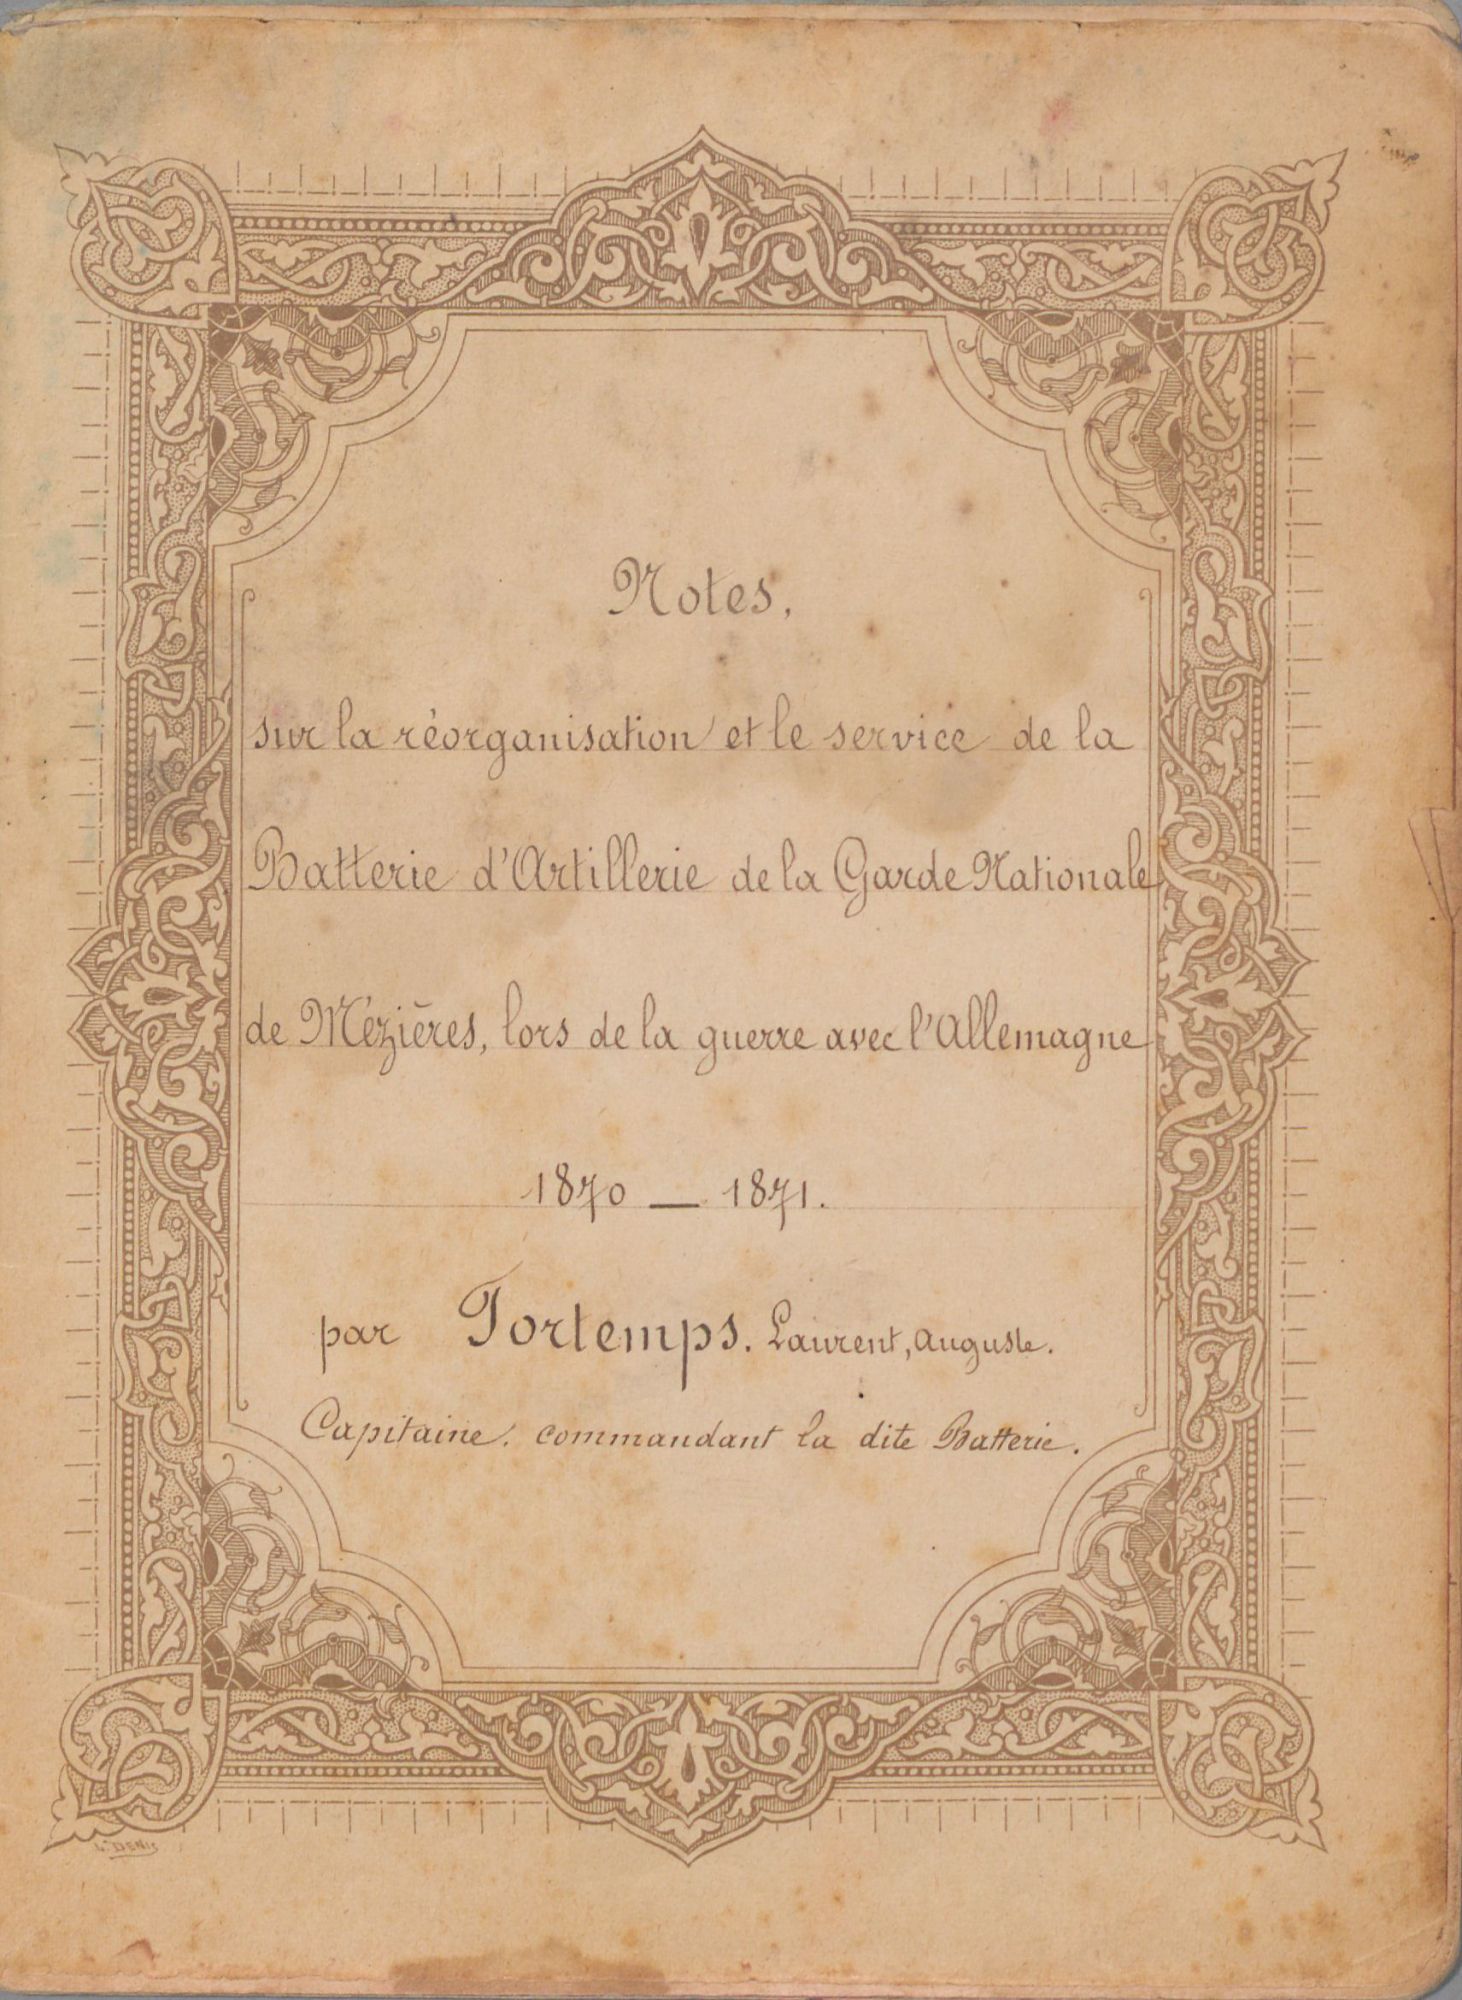 Notes,
sur la réorganisation et le service de la
Batterie d'Artillerie de la Garde Nationale
de Mézières, lors de la guerre avec l'Allemagne
1870 — 1871.
par Tortemps. Laurent, Auguste.
Capitaine. commandant la dite Batterie.
L. DENIS